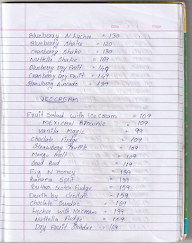 Blueberry N Lychee = 130
Blueberry Shake = 120
Cranberry Shake = 130
Nutella Shake = 149
Blueberry Dry Fruit = 149
Cranberry Dry Fruit = 149
= 139
ICECREAM
Fruit Salad with Icecream = 109
Mexican Brownie = 109
Vanilla = 99
Choclate Fudge = 109
Strawberry = 109
Mango
God Bud = 119
Big N Honey = 139
Banana Split = 139
Butter Scotch Fudge = 139
Death by Choclate = 159
Choclate Sundae = 150
Lychee with Icecream = 139
Nutella Fudge = 159
Dry Fruit Sundae = 159